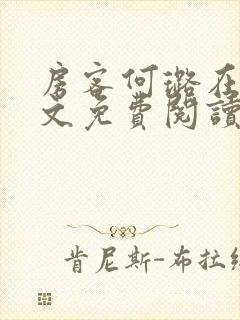 房客何璐在
文免费閱讀
肯尼斯-布拉